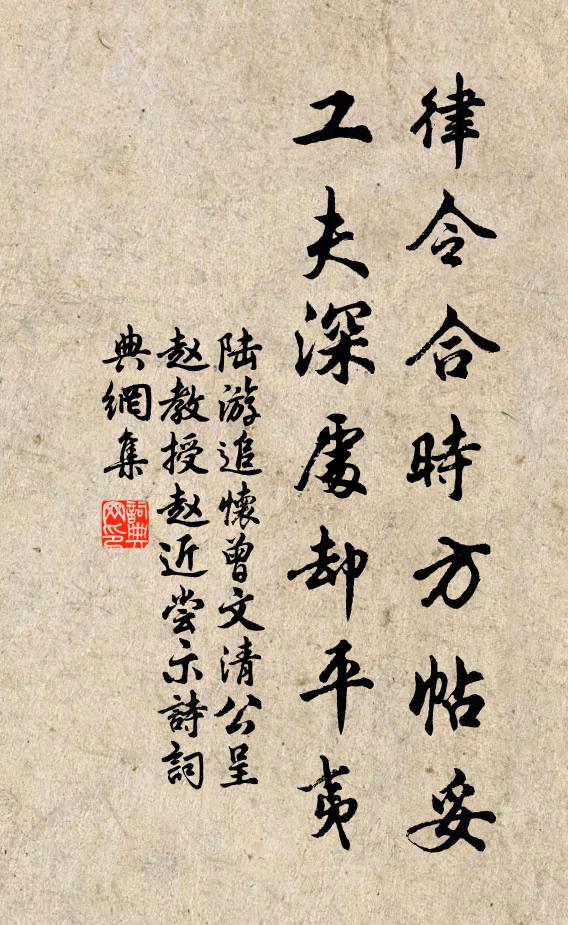 律令合時方帖妥
工夫深處却平夷
陆游追懷曾文清公呈
赵教授赵近尝示詩詞
典網集
詞典網印